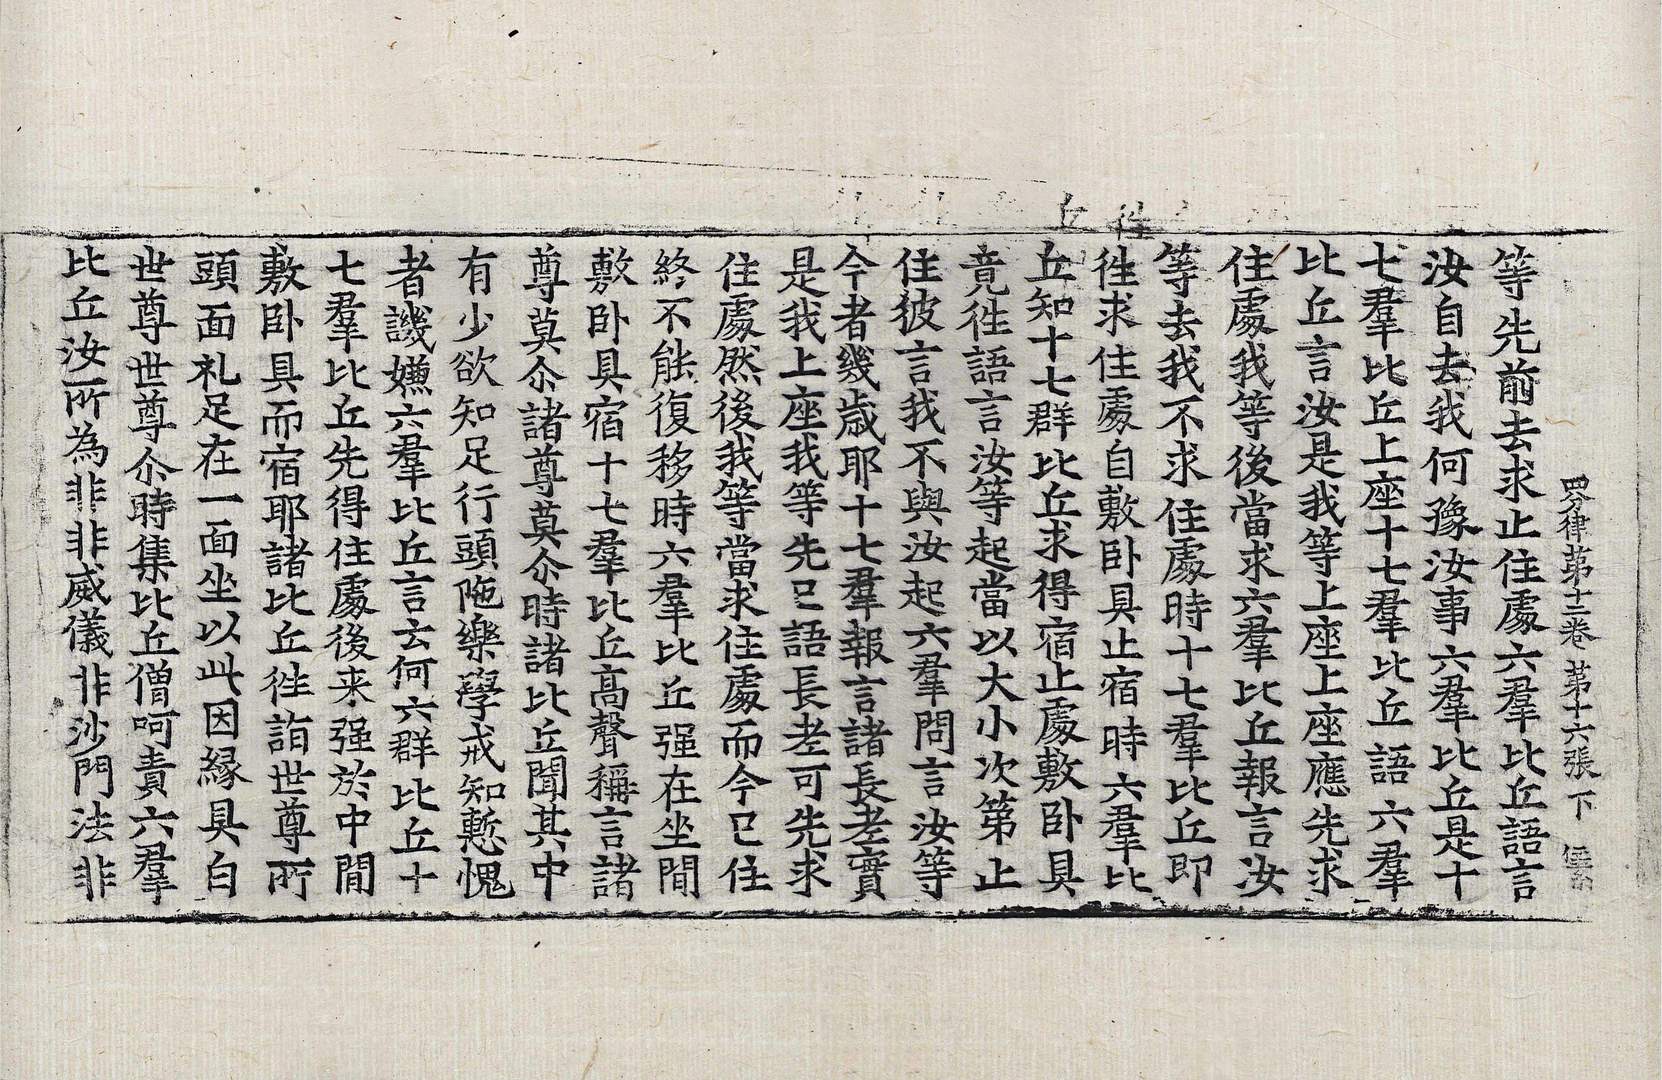 四分律苐十二卷 苐十六張 下 儒
等先前去求止住處六羣比丘語言
汝自去我何豫汝事六羣比丘是十
七羣比丘上座十七羣比丘語六羣
比丘言汝是我等上座上座應先求
住處我等後當求六羣比丘報言汝
等去我不求住處時十七羣比丘即
徃求住處自敷卧具止宿時六羣比
丘知十七群比丘求得宿止處敷卧具
竟徃語言汝等起當以大小次第止
住彼言我不與汝起六羣問言汝等
今者幾歳耶十七羣報言諸長老實
是我上座我等先已語長老可先求
住處然後我等當求住處而今已住
終不能復移時六羣比丘强在坐間
敷卧具宿十七羣比丘高聲稱言諸
尊莫尒諸尊莫尒時諸比丘聞其中
有少欲知足行頭陁樂學戒知慙愧
者譏嫌六羣比丘言云何六群比丘十
七羣比丘先得住處後来强於中間
敷卧具而宿耶諸比丘徃詣世尊所
頭面礼足在一面坐以此因縁具白
世尊世尊尒時集比丘僧呵責六羣
比丘汝所為非非威儀非沙門法非
徃
丘